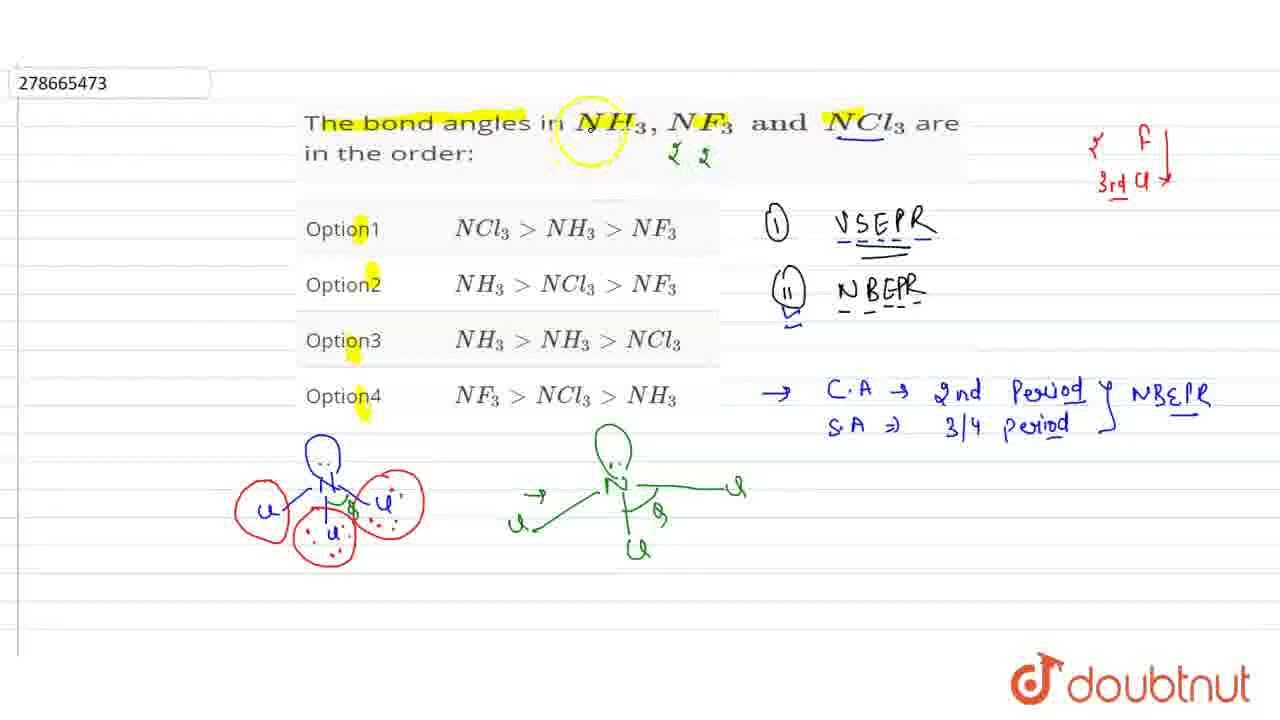 278665473
The bond angles in NH₃, NF₃ and NCl₃ are
in the order:
2 2
2 F
3rd Cl
Option1 NCl₃ > NH₃ > NF₃
Option2 NH₃ > NCl₃ > NF₃
Option3 NH₃ > NH₃ > NCl₃
Option4 NF₃ > NCl₃ > NH₃
(i) VSEPR
(ii) NBEPR
→ C.A → 2nd Period } NBEPR
S.A ⇒ 3/4 period
N
Cl Cl Cl θ
→ N
Cl Cl Cl θ
doubtnut